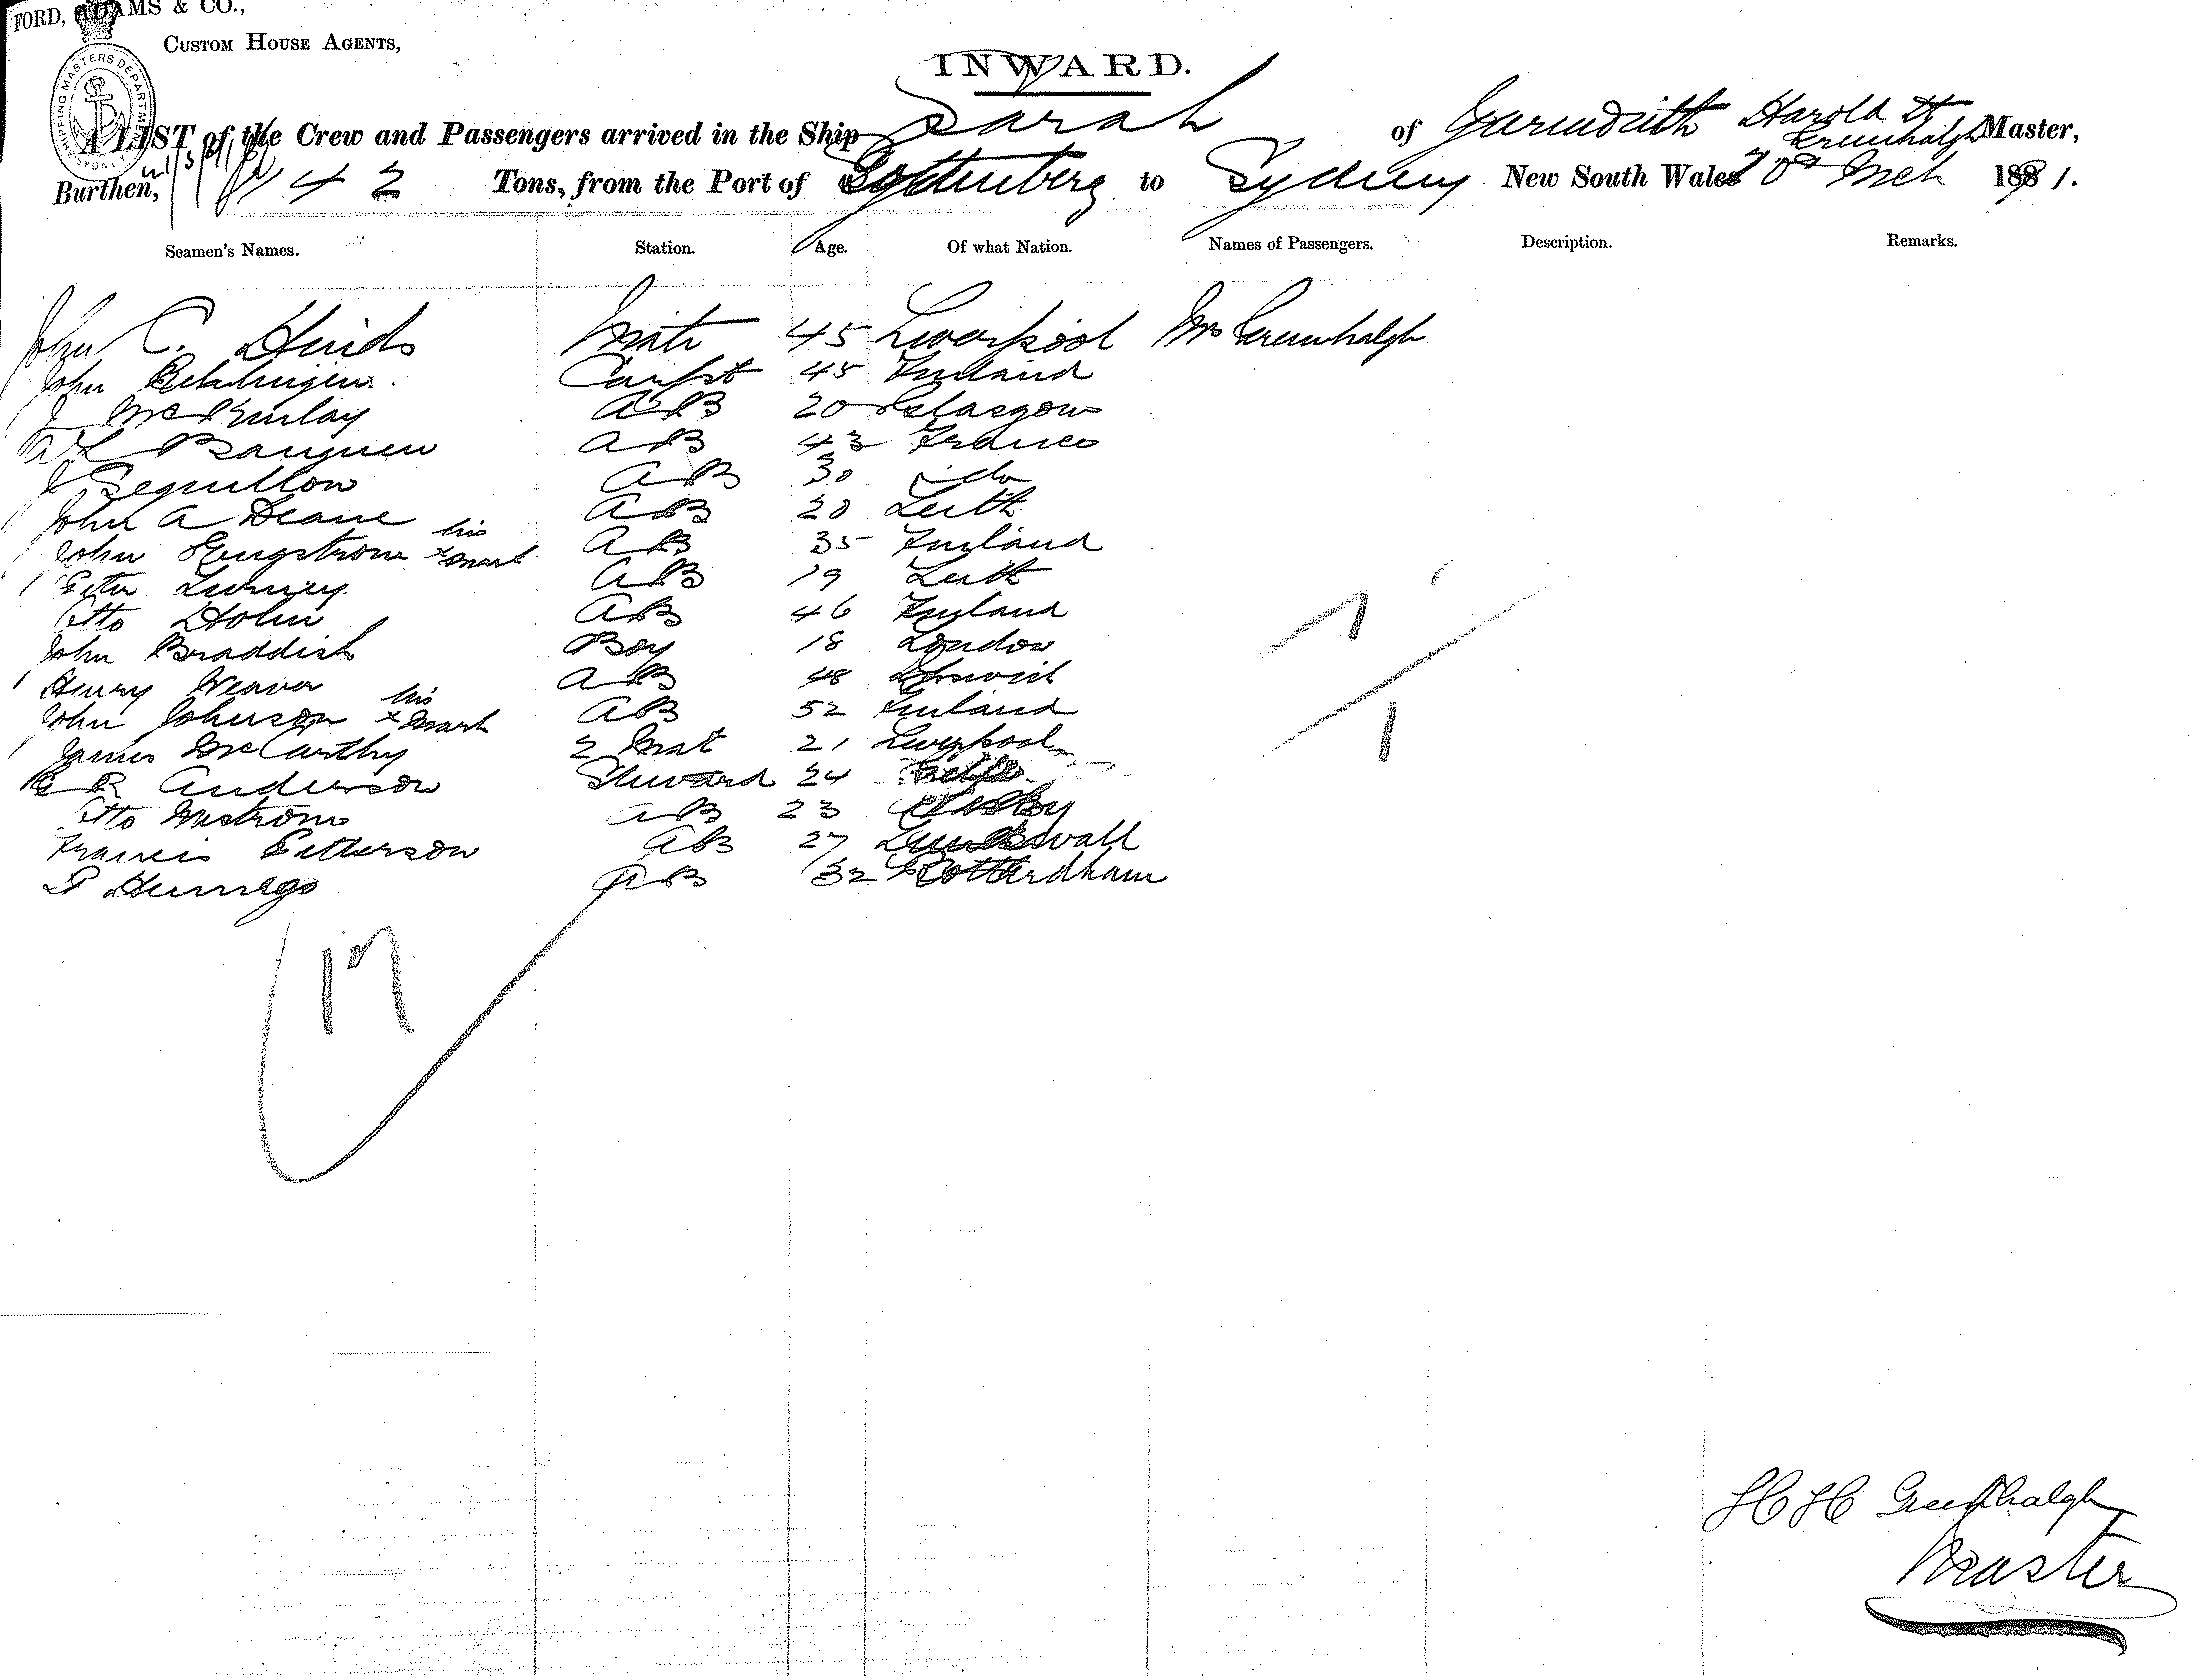 FORD, ADAMS & CO.,
CUSTOM HOUSE AGENTS,
SHIPPING MASTERS DEPARTMENT
INWARD.
A LIST of the Crew and Passengers arrived in the Ship Sarah of Harold H Greenhalgh Master,
Burthen, 1142 Tons, from the Port of Gottenberg to Sydney New South Wales Mch 1891.
Seamen's Names. Station. Age. Of what Nation. Names of Passengers. Description. Remarks.
John C. Hinds Mate 45 Liverpool Mrs Greenhalgh
John Carpt 45 Finland
J McKinlay AB 20 Glasgow
AB 43 France
J AB 30 do
John A Deane AB 20 Leith
John Engstrom his x mark AB 35 Finland
Peter AB 19 Leith
Otto Holm AB 46 Finland
John Braddish Boy 18 London
Henry Weaver AB 48
John Johnson his x mark AB 52 Finland
James McCarthy 2 Mat 21 Liverpool
Anderson Steward 24
Otto AB 23
Francis Petterson AB 27
AB 32 Rotterdham
17
1
1
H H Greenhalgh
Master